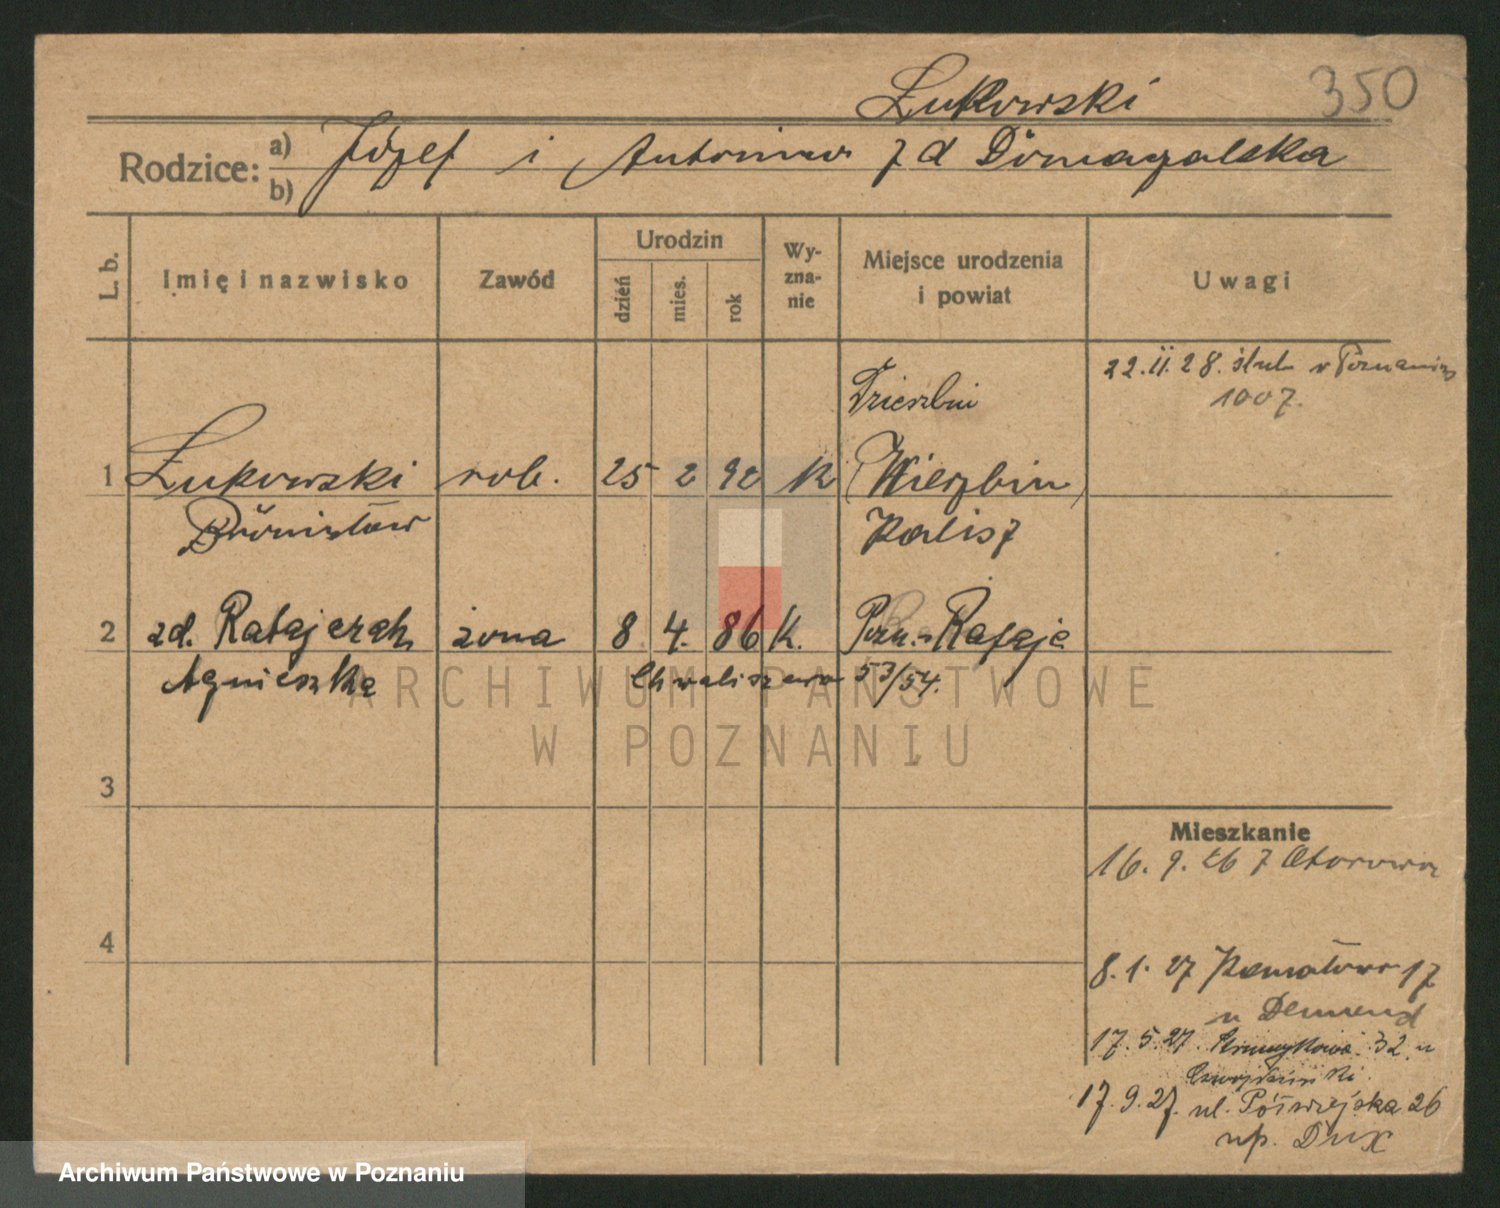 Łukowski 350
Rodzice: a) Józef i Antonina z d Domagalska
b)
L. b. Imię i nazwisko Zawód Urodzin dzień mies. rok Wy-zna-nie Miejsce urodzenia i powiat Uwagi
22.II.28. ślub w Poznaniu
1007.
1 Łukowski rob. 25 2 92 K (Wierzbin)
Bronisław Kalisz
2 zd. Ratajczak żona 8 4. 86 K. Pozn. - Rataje
Agnieszka Chwaliszewo 53/54.
3
4
Mieszkanie
16. 9. 26 z Otorowa
8. 1. 27 17
u
17. 5. 27. 32 u
17. 9. 27. ul. Półwiejska 26
np. Dux
ARCHIWUM PAŃSTWOWE
W POZNANIU
Archiwum Państwowe w Poznaniu